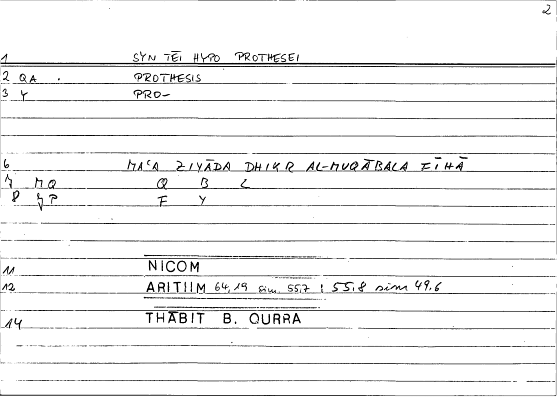 2
1 SYN TĒI HYPO PROTHESEI
2 QA . PROTHESIS
3 Y PRO-
6 MAʿA ZIYĀDA DHIKR AL-MUQĀBALA FĪHĀ
MQ Q B L
8 P F Y
11 NICOM
12 ARITIIM 64,19 sim. 55.7 ; 55.8 sim 49.6
14 THĀBIT B. QURRA